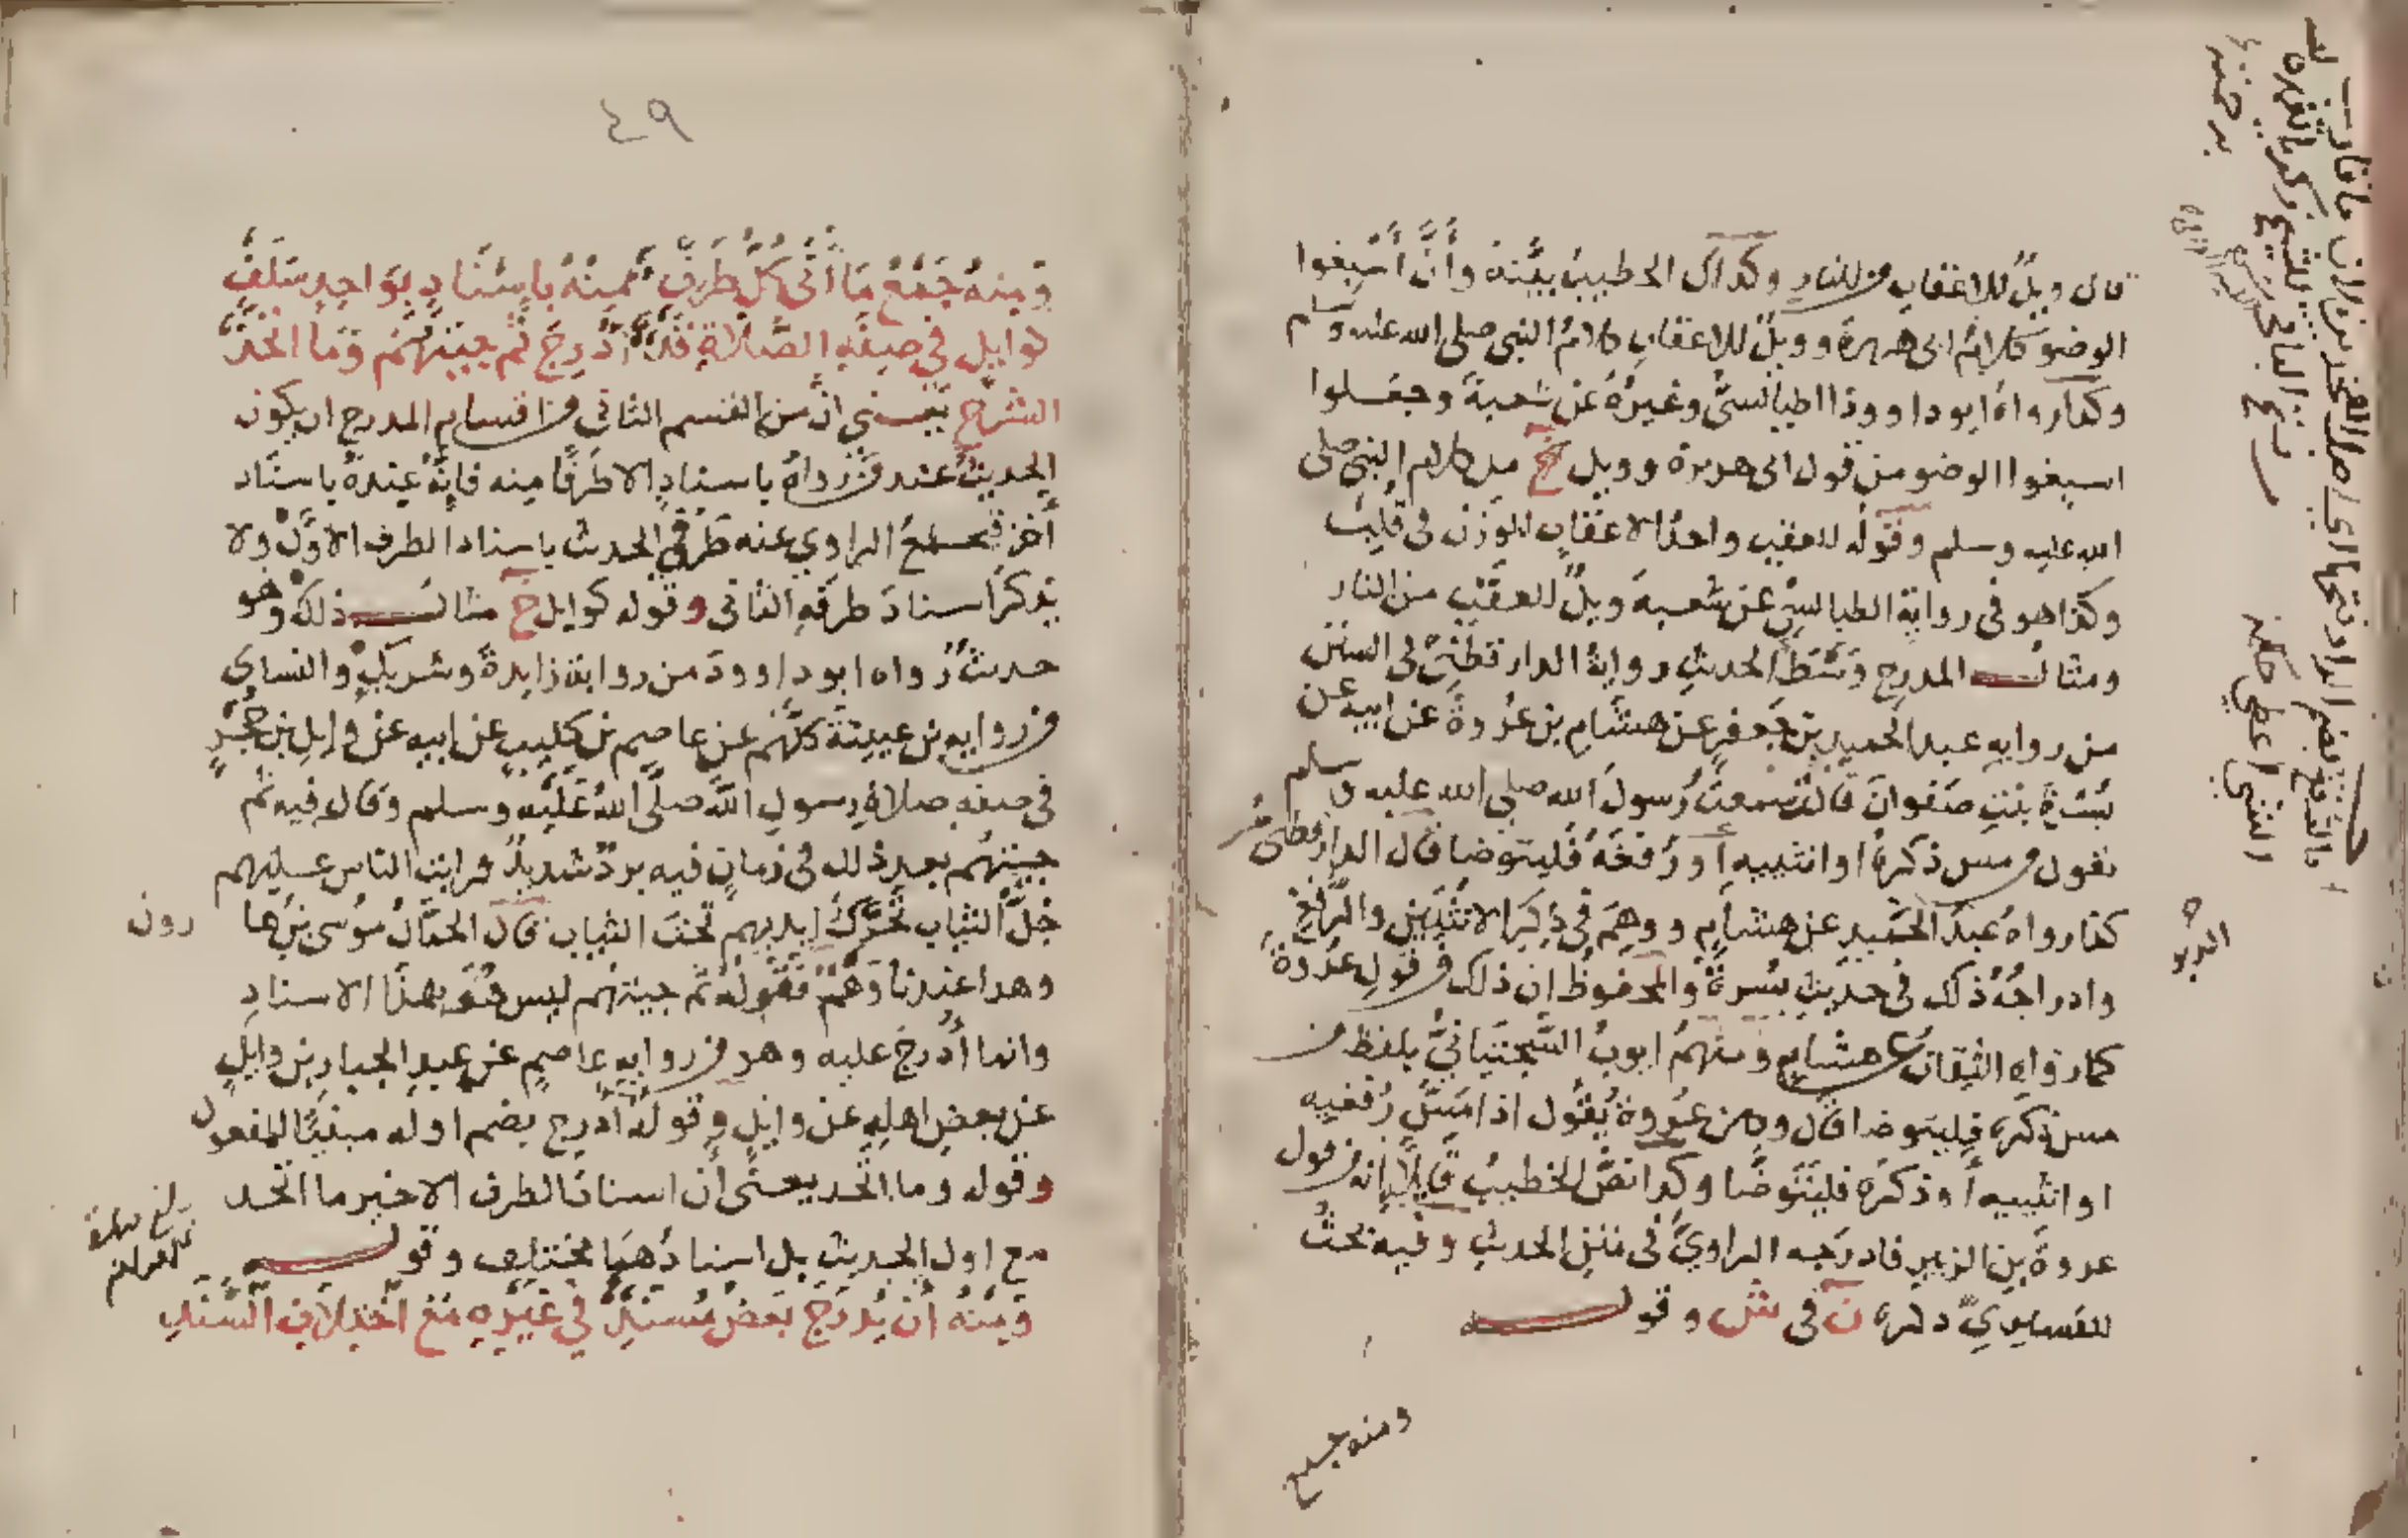 قال ويل للاعقاب من النار وكذاك الخطيب بينه وأن أسبغوا
الوضو كلام ابى هريرة وويل للاعقاب كلام النبى صلى الله عليه وسلم
وكما رواه ابو داوود الطيالسي وغيره عن شعبة وجعلوا
اسبغوا الوضو من قول ابى هريرة وويل الخ من كلام النبى صلى
الله عليه وسلم وقوله للعقب واحد الاعقاب للوزن فى قلبت
وكذا هو فى رواية الطيالسى عن شعبه ويل للعقب من النار
ومثال المدرج وسط الحديث رواية الدارقطنى فى السنن
من روايه عبد الحميد بن جعفر عن هشام بن عروة عن ابيه عن
بسرة بنت صفوان قالت سمعت رسول الله صلى الله عليه وسلم
يقول من مس ذكره او انثييه أو رفغه فليتوضا قال الدارقطنى
كذا رواه عبد الحميد عن هشام ووهم فى ذكر الانثيين والرفغ
وادراجه ذلك فى حديث بسرة والمحفوظ ان ذلك من قول عروة
كما رواه الثقات عن هشام ومنهم ايوب السختيانى بلفظ من
مس ذكره فليتوضا قال وكان عروة يقول اذا مس رفغيه
او انثييه أو ذكره فليتوضا وكذا نص الخطيب قايلا انه من قول
عروة بن الزبير فادرجه الراوي فى متن الحديث وفيه بحث
للقشيري ذكره ن فى ش وقوله
ومنه جمع
٤٩
ومنه جمع ما أتى كل طرف منه باسناد بواحد سلف
كوايل فى صفة الصلاة قد أدرج ثم جيتهم وما اتحد
الشرح يعنى ان من القسم الثانى من اقسام المدرج ان يكون
الحديث عند من رواه باسناد الا طرفا منه فانه عنده باسناد
أخر فيجمع الراوي عنه طرفي الحديث باسناد الطرف الاول ولا
يذكر اسناد طرفه الثانى وقوله كوايل خ مثال ذلك وهو
حديث رواه ابو داوود من رواية زايدة وشريك والنساى
من روايه بن عيينة كلهم عن عاصم بن كليب عن ابيه عن وايل بن حجر
فى صفه صلاة رسول الله صلى الله عليه وسلم وقال فيه ثم
جيتهم بعد ذلك فى زمان فيه برد شديد فرايت الناس عليهم
جل الثياب تحرك ايديهم تحت الثياب قال الحمال موسى بن ها
رون
وهدا عندنا وهم فقوله ثم جيتهم ليس هو بهذا الاسناد
وانما أدرج عليه وهو من روايه عاصم عن عبد الجبار بن وايل
عن بعض اهله عن وايل وقوله أدرج بضم اوله مبنيا للمفعول
وقوله وما اتحد يعنى أن اسناد الطرف الاخير ما اتحد
مع اول الحديث بل اسنادهما مختلف وقوله
ومنه أن يدرج بعض مسند في غيره مع اختلاف السند